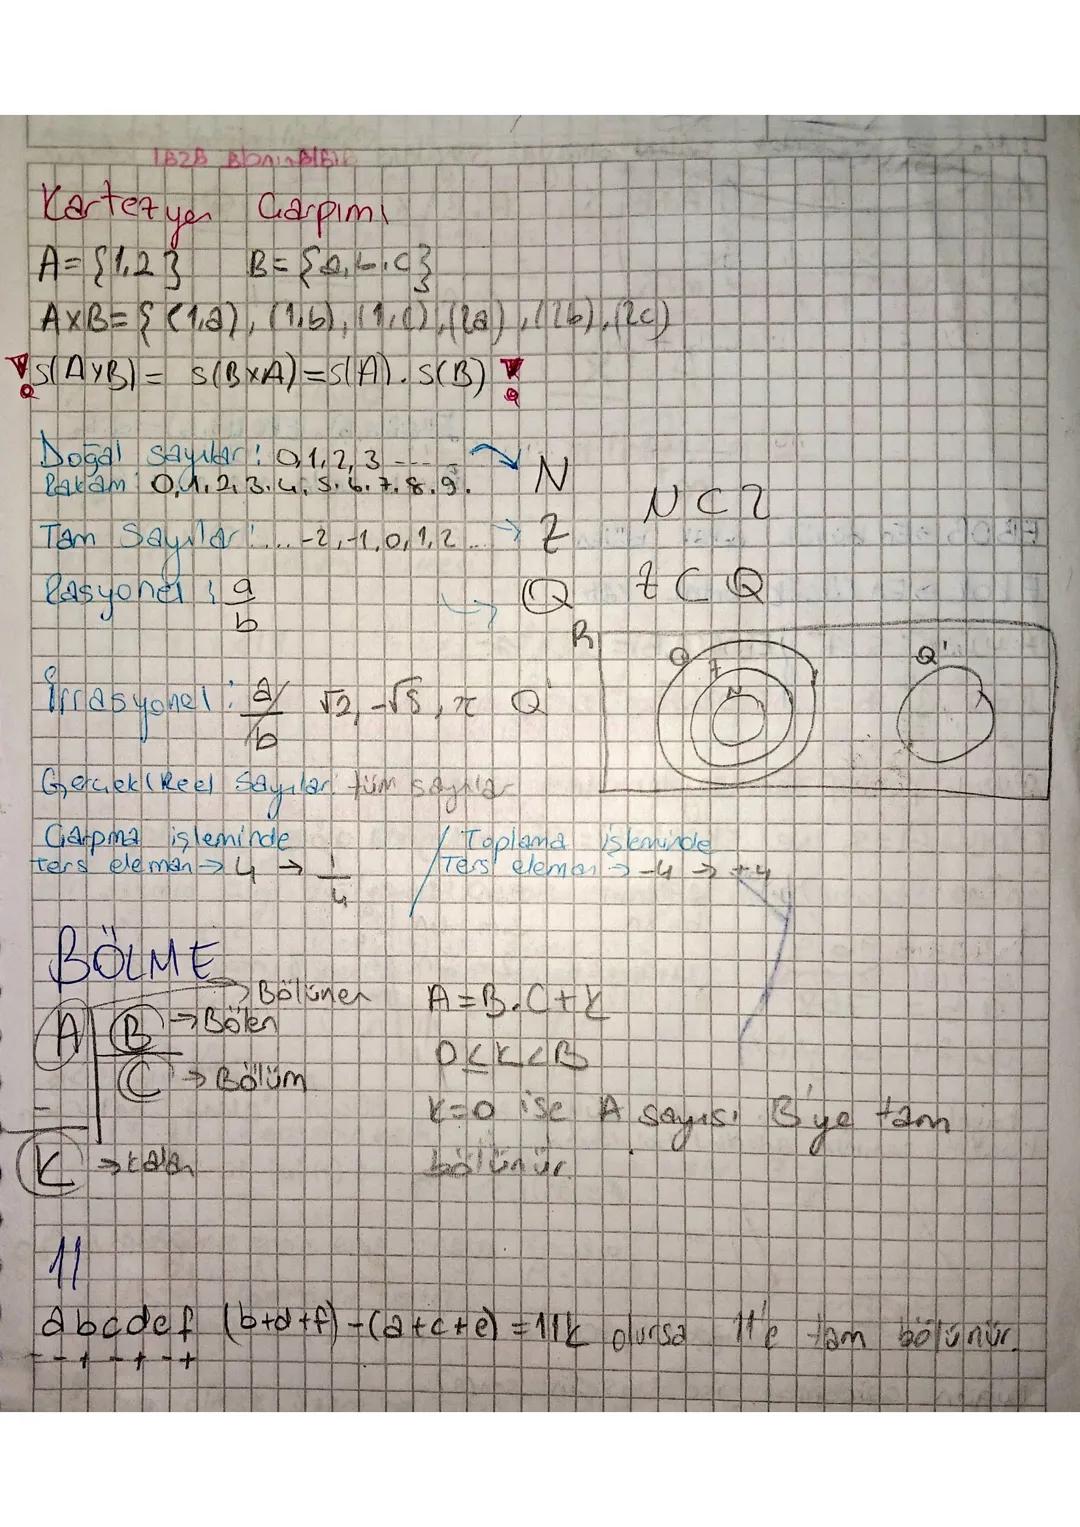 Kartezyen Çarpımı
A={1,2} B={a,b,c}
AxB={(1,a),(1,b),(1,c),(2a),(2b),(2c)
s(AxB)= s(BxA)=s(A).s(B)
Doğal sayılar: 0,1,2,3 ---- → N
Rakam 0,1,2,3,4,5,6,7,8,9.
N⊂Z
Tam Sayılar: ...-2,-1,0,1,2... → Z
Rasyonel : a/b → Q Z⊂Q
R Q Z N Q'
İrrasyonel: a/b √2, -√8, π Q'
Gerçek(Reel Sayılar: tüm sayılar
Çarpma işleminde / Toplama işleminde
ters eleman→ 4 → 1/4 Ters eleman → -4 → +4
BÖLME
→ Bölünen A=B.C+K
A B → Bölen
0≤K<B
C → Bölüm
K=0 ise A sayısı B'ye tam
K → kalan bölünür.
11
abcdef (b+d+f)-(a+c+e)=11k olursa 11'e tam bölünür.
- + - + - +